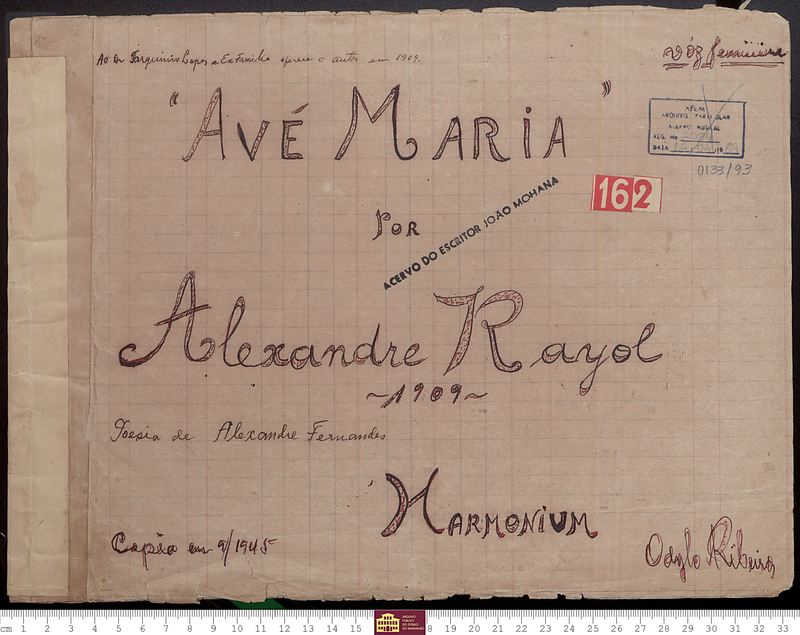 Ao Dr Tarquinio Lopes e Exma familia oferece o autor em 1909.
vóz feminina
"AVÉ MARIA"
APEM
ARQUIVO PARTICULAR
ACERVO MUSICAL
REG. Nº
DATA
0133/93
162
POR
ACERVO DO ESCRITOR JOÃO MOHANA
Alexandre Rayol
~1909~
Poesia de Alexandre Fernandes
HARMONIUM
Copia em 9/1945
Odylo Ribeiro
ARQUIVO
PÚBLICO
DO ESTADO
DO MARANHÃO
cm 1 2 3 4 5 6 7 8 9 10 11 12 13 14 15 8 19 20 21 22 23 24 25 26 27 28 29 30 31 32 33